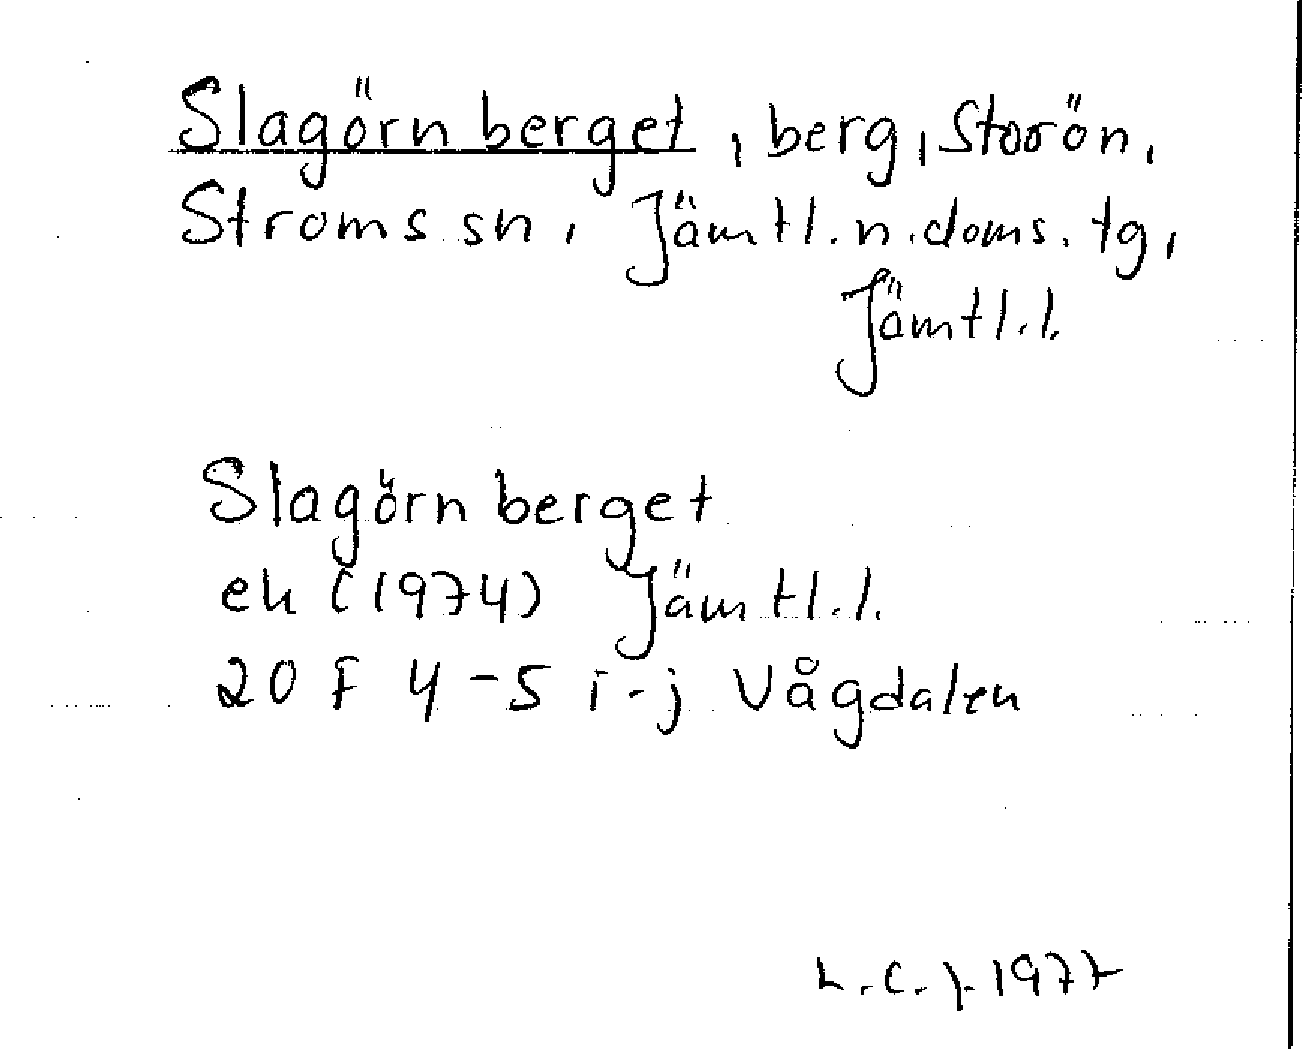 Slagörnberget, berg, Storön,
Ströms sn, Jämtl. n. doms. tg,
Jämtl. l.
Slagörnberget
ek (1974) Jämtl. l.
20 F 4-5 i-j Vågdalen
1977